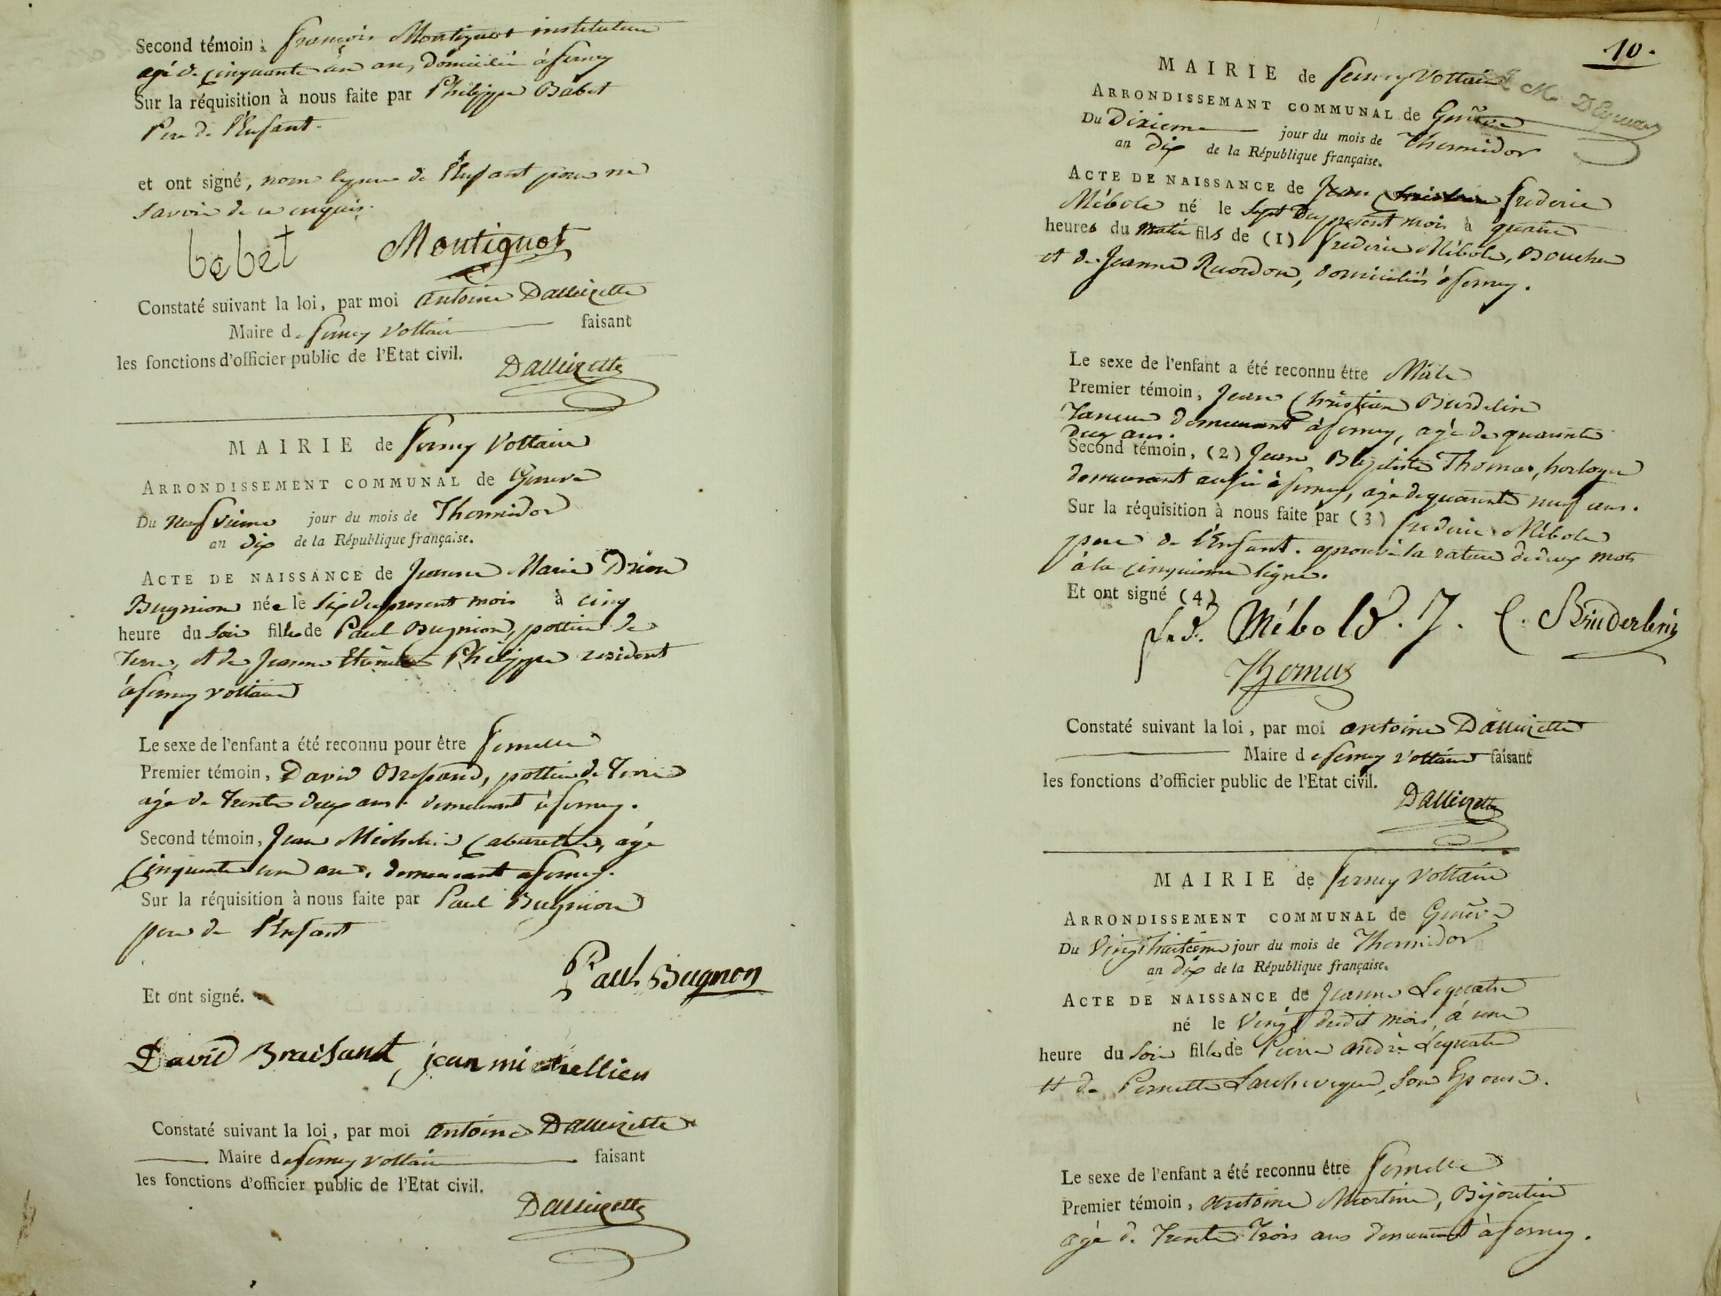 Second témoin : françois Montignot instituteur
agé de cinquante un ans, domicilié à ferney
Sur la réquisition à nous faite par Philippe Babet
Pere de l'Enfant.
et ont signé, non la mere de l'Enfant pour ne
savoir de ce enquis.
babet Montignot
Constaté suivant la loi, par moi antoine Dallizette
Maire de ferney Voltaire faisant
les fonctions d'officier public de l'Etat civil.
Dallizette
MAIRIE de ferney Voltaire
ARRONDISSEMENT COMMUNAL de Geneve
Du neufvieme jour du mois de Thermidor
an dix de la République française.
ACTE DE NAISSANCE de Jeanne Marie
Bugnion née le six du present mois à cinq
heure du soir fille de Paul Bugnion, pottier de
Terre, et de Jeanne Philippe resident
à ferney voltaire
Le sexe de l'enfant a été reconnu pour être femelle
Premier témoin, David Bresand, pottier de Terre
agé de trente deux ans demeurant à ferney.
Second témoin, Jean Cabaretier, agé
Cinquante un ans, demeurant a ferney.
Sur la réquisition à nous faite par Paul Bugnion
pere de l'Enfant
Paul Bugnon
Et ont signé.
David Braisant, jean
Constaté suivant la loi, par moi antoine Dallizette
Maire de ferney voltaire faisant
les fonctions d'officier public de l'Etat civil.
Dallizette
10.
MAIRIE de ferney Voltaire
ARRONDISSEMANT COMMUNAL de Genève
Du Dixieme jour du mois de Thermidor
an dix de la République française.
ACTE DE NAISSANCE de Jean frederic
Mébold né le sept du present mois à quatre
heures du matin fils de (1) frederic Mébold, Boucher
et de Jeanne domiciliés à ferney.
Le sexe de l'enfant a été reconnu être Mâle
Premier témoin, Jean Christian
Tanneur demeurant à ferney, agé de quarante
deux ans.
Second témoin, (2) Jean Baptiste Thomas, horloger
demeurant aussi à ferney, agé de quarante neuf ans.
Sur la réquisition à nous faite par (3) frederic Mébold
pere de l'Enfant. aprouvé la rature de deux mots
à la cinquieme ligne.
Et ont signé (4)
fred. Mébold. J. C. Bruderlin
Thomas
Constaté suivant la loi, par moi antoine Dallizette
Maire de ferney Voltaire faisant
les fonctions d'officier public de l'Etat civil.
Dallizette
MAIRIE de ferney Voltaire
ARRONDISSEMENT COMMUNAL de Genève
Du Vingthuitieme jour du mois de Thermidor
an dix de la République française.
ACTE DE NAISSANCE de Jeanne Lequatre
né le Vingt dudit mois, à une
heure du soir fille de Pierre andré Lequatre
et de Pernette son Epouse.
Le sexe de l'enfant a été reconnu être femelle
Premier témoin, antoine Martin, Bijoutier
agé de trente trois ans demeurant à ferney.